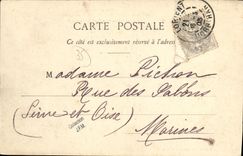 CARTE POSTALE
Ce côté est exclusivement réservé à l'adresse
Madame Pichon
Rue des
(Seine et Oise)
Marines